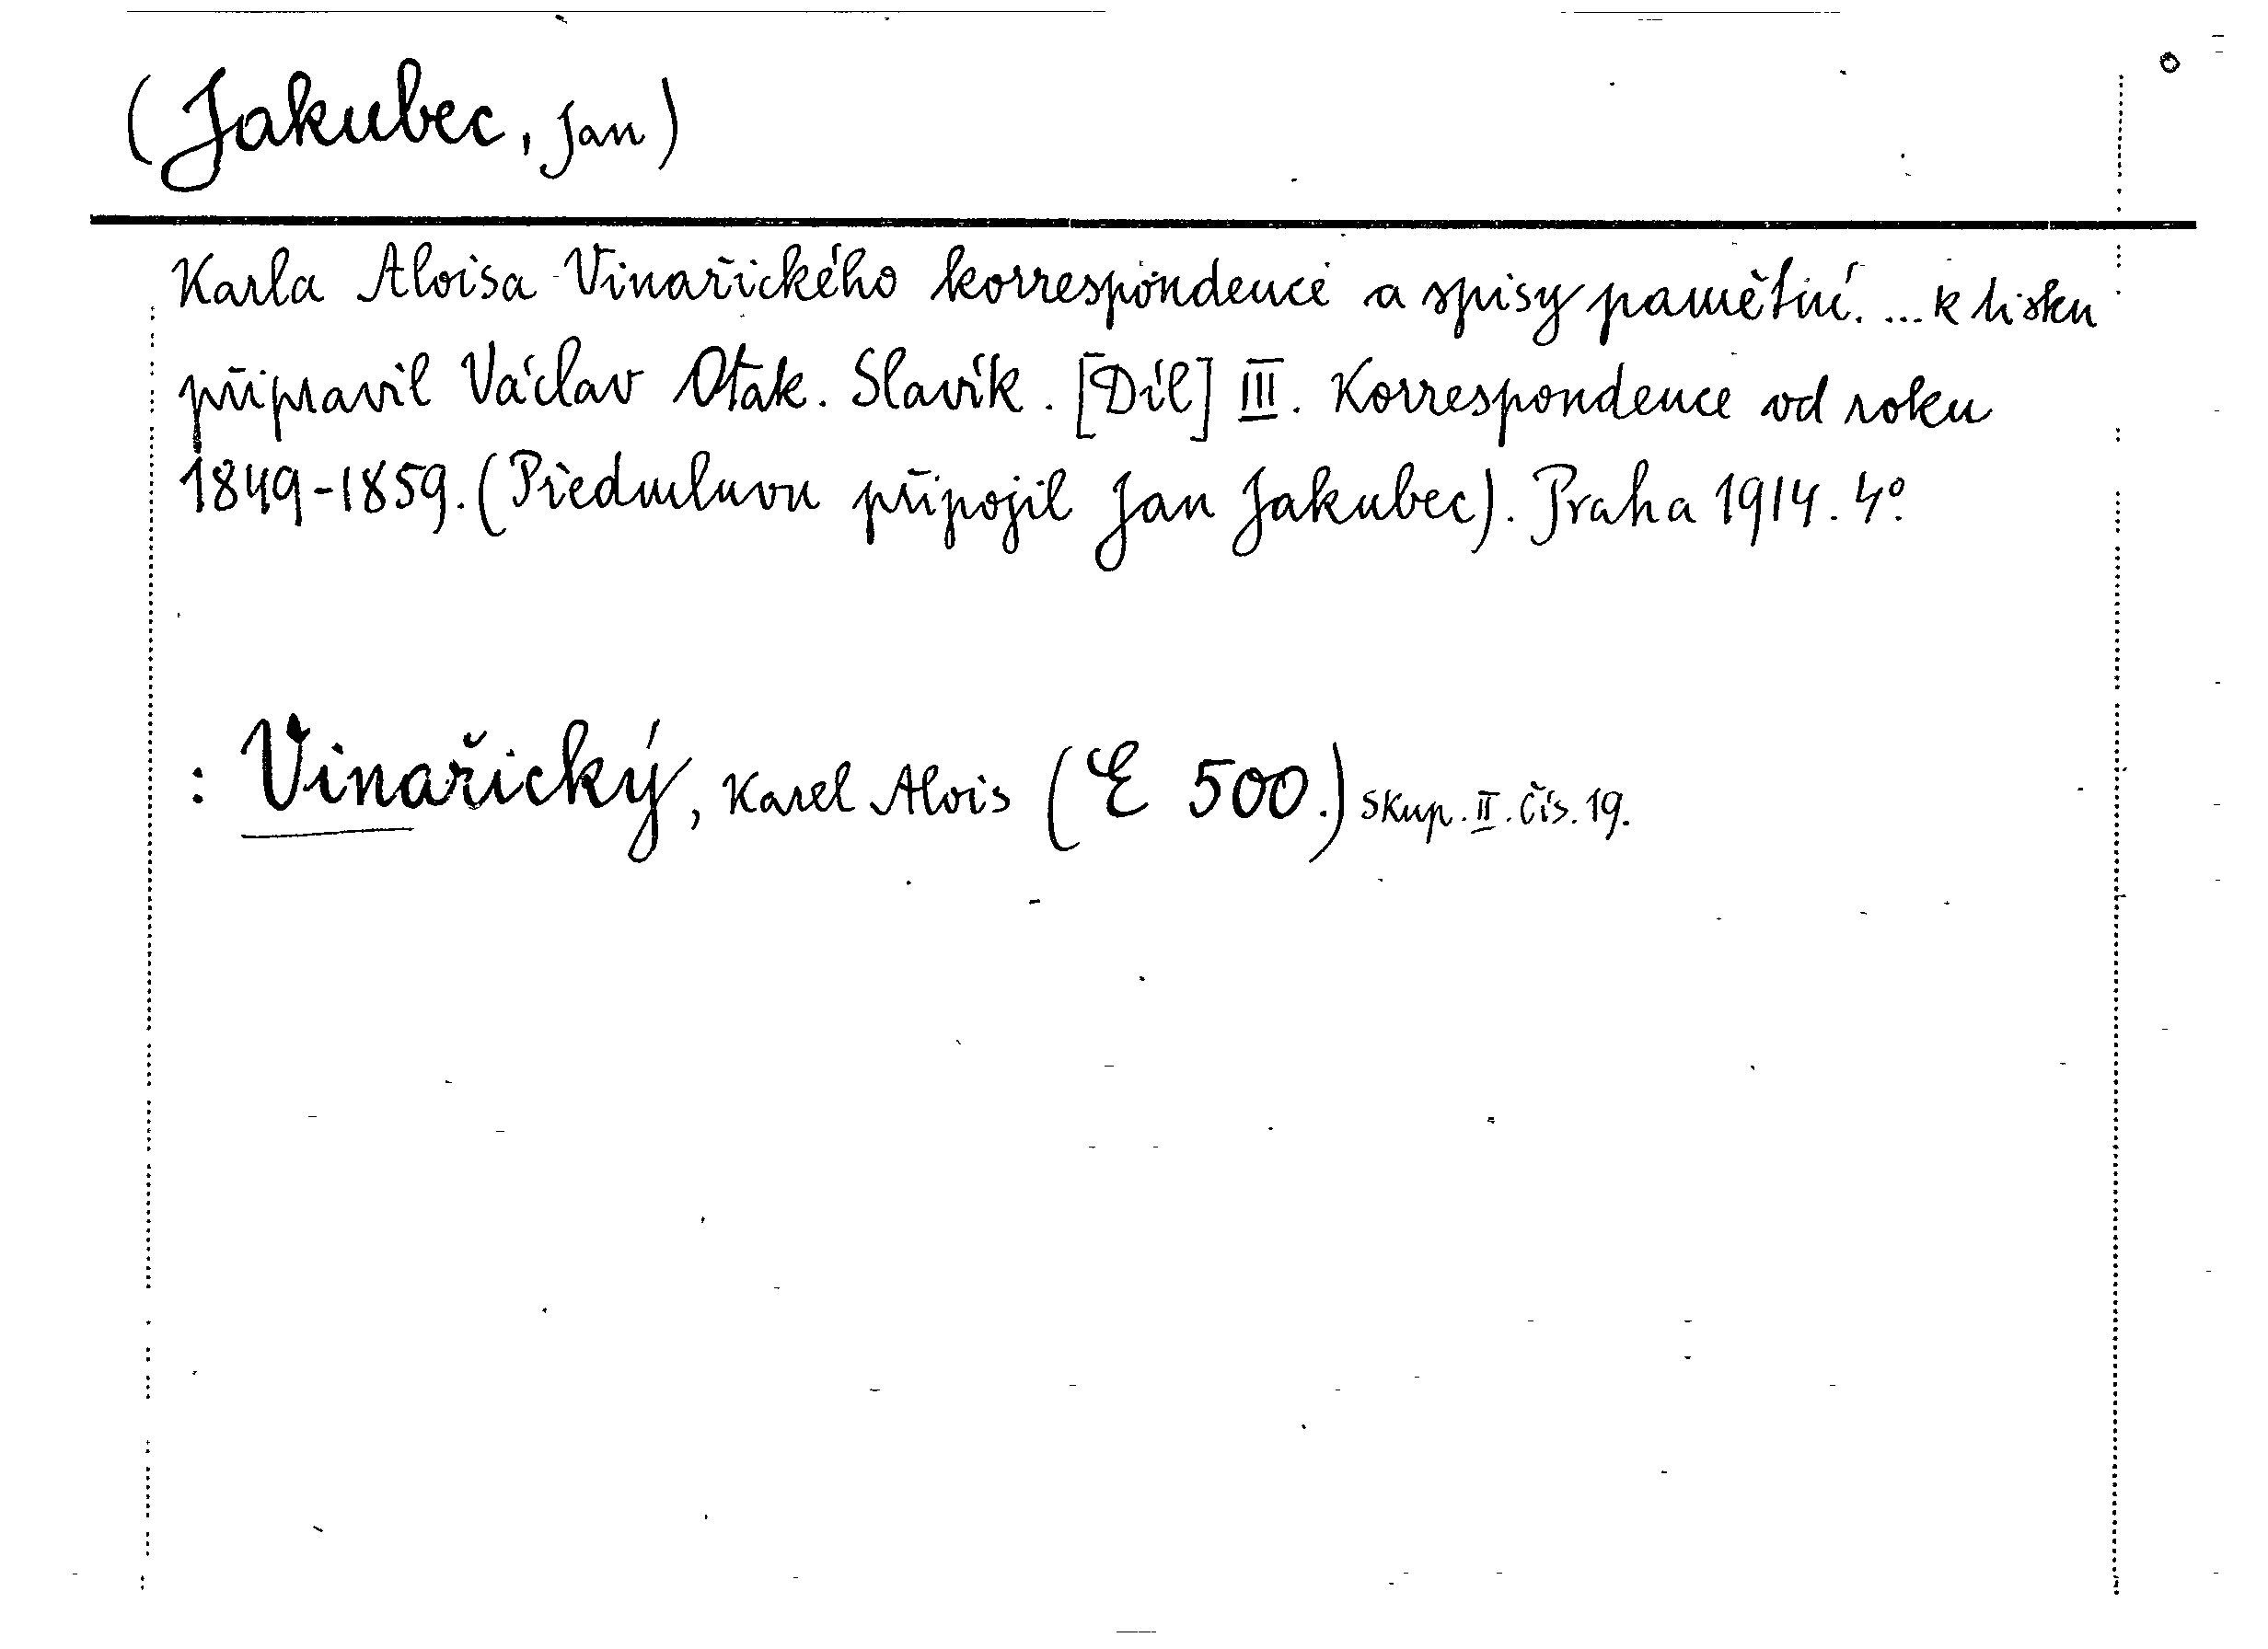 (Jakubec, Jan)
Karla Aloisa Vinařického korrespondence a spisy pamětní. ... k tisku
připravil Václav Otak. Slavík. [Díl] III. Korrespondence od roku
1849-1859. (Předmluvu připojil Jan Jakubec). Praha 1914. 4°.
: Vinařický, Karel Alois (E 500.) Skup. II. čís. 19.